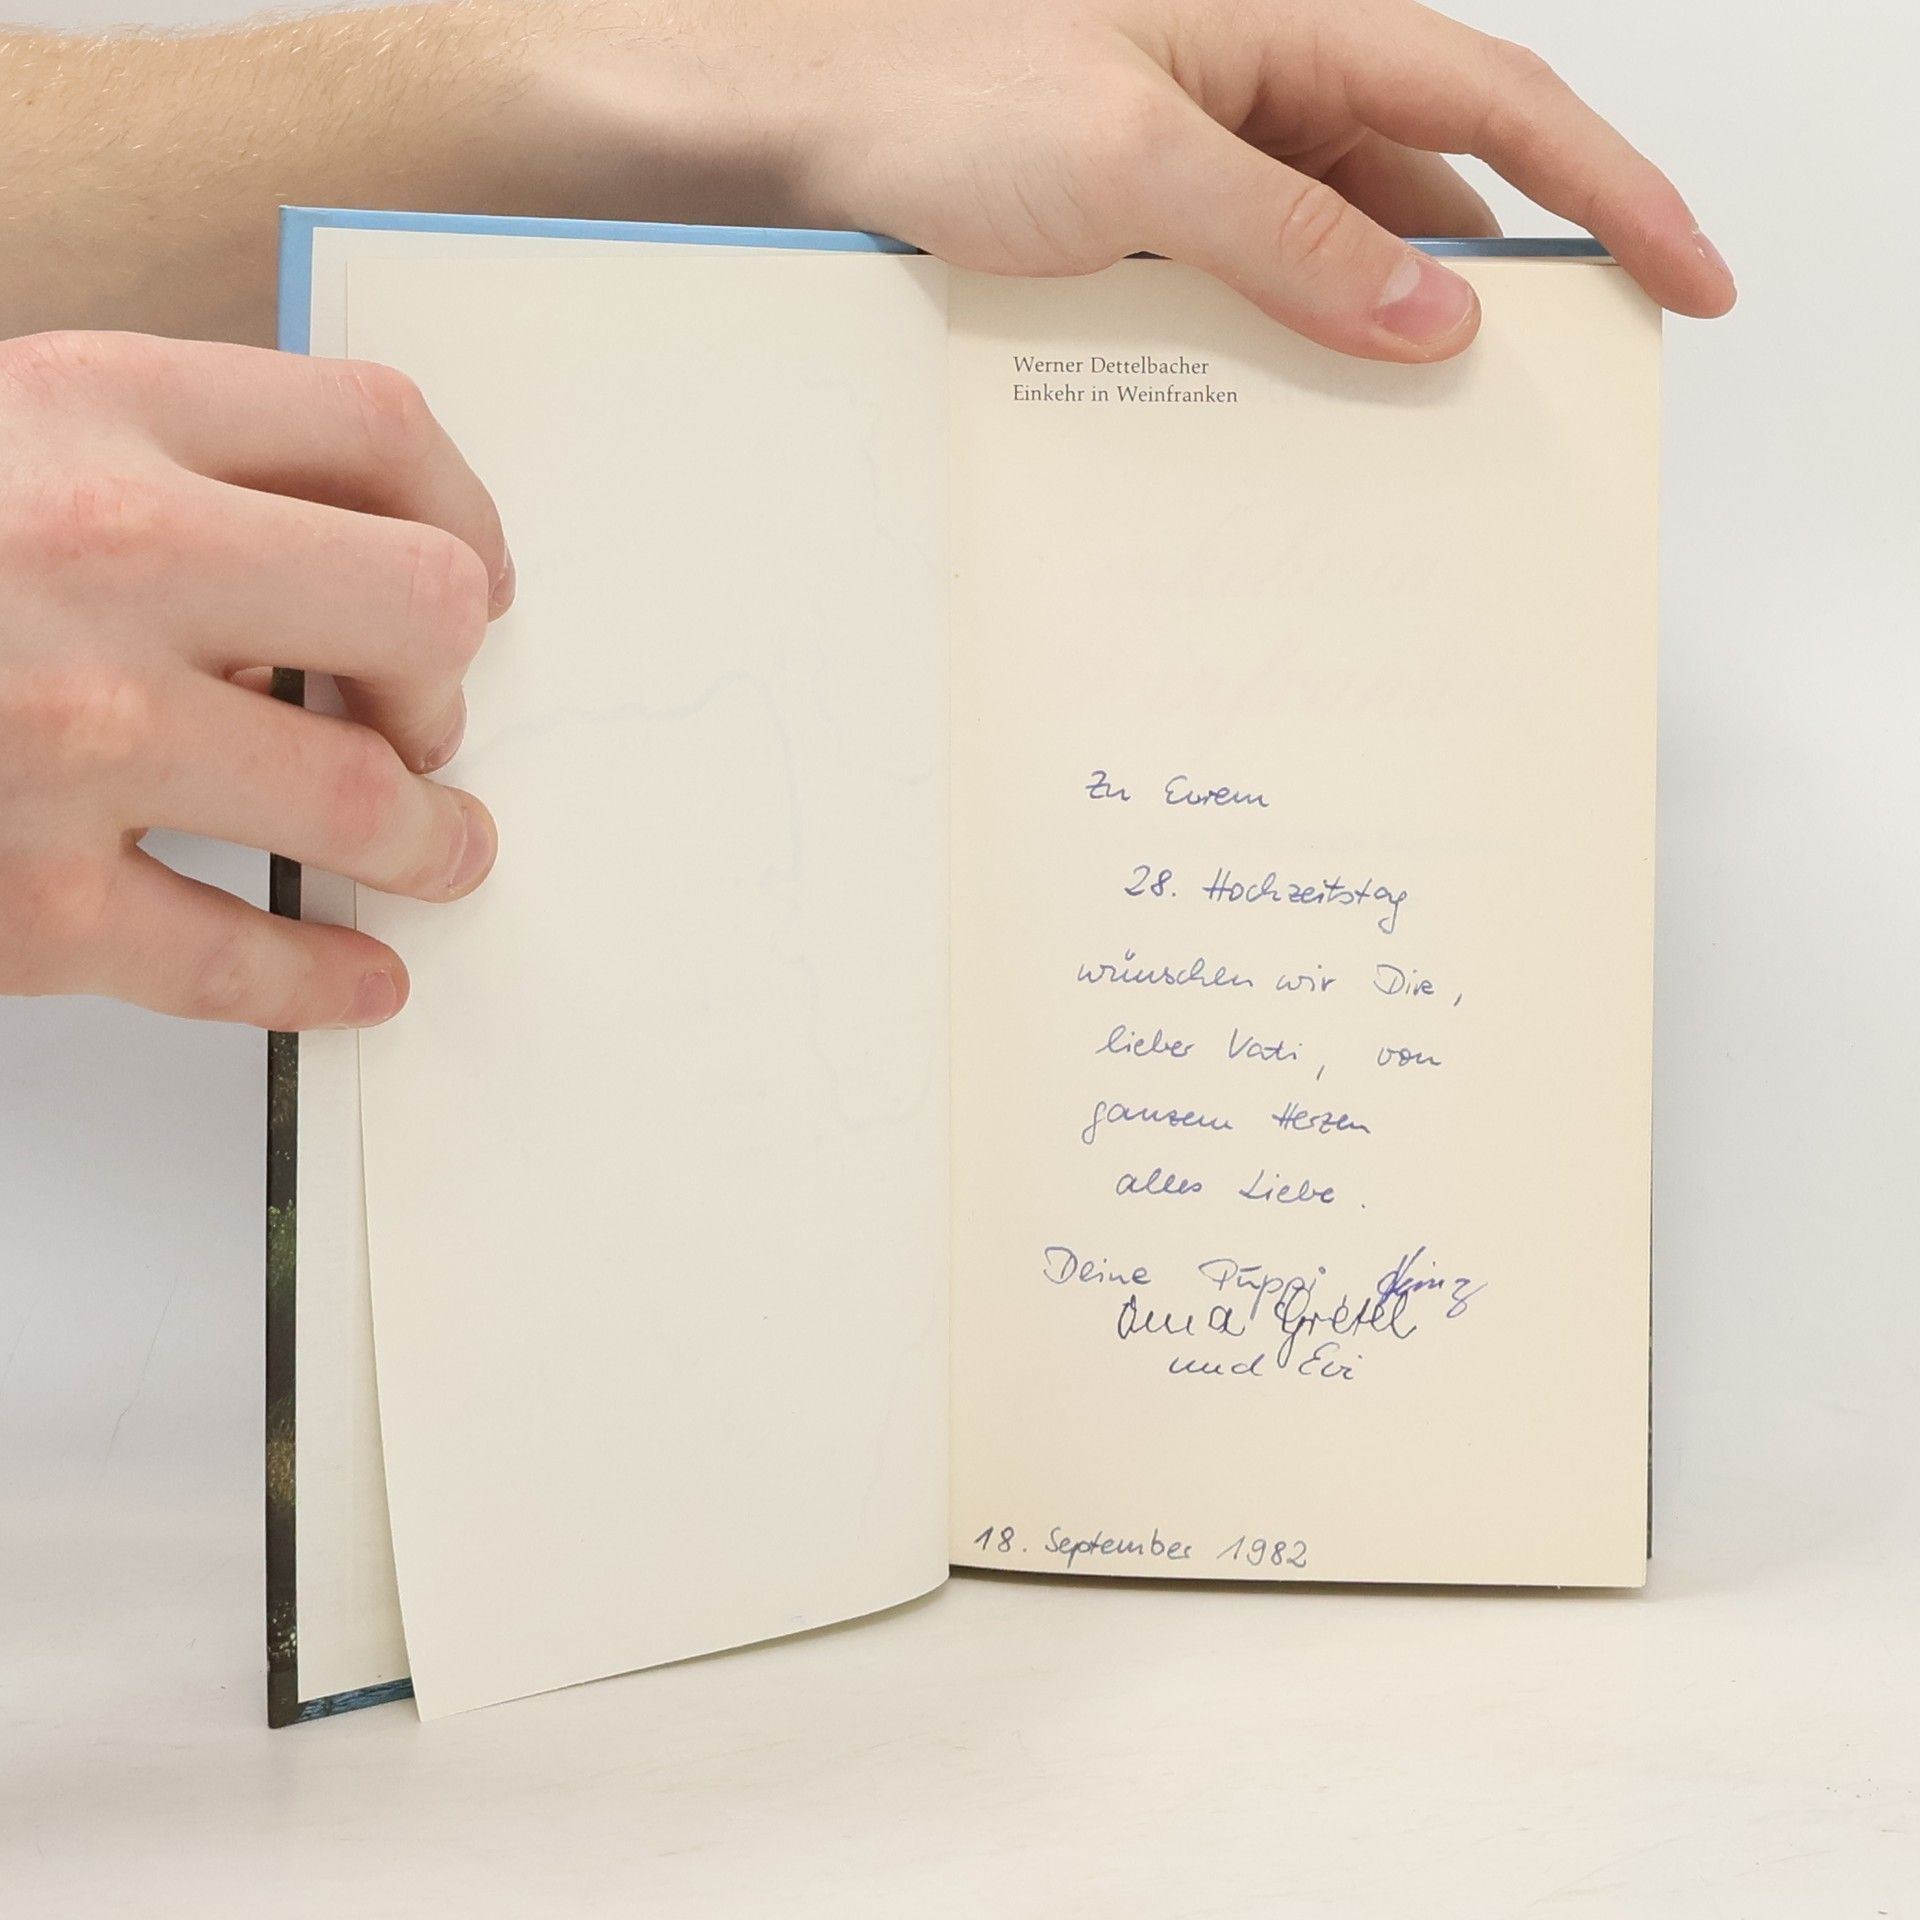 Werner Dettelbacher
Einkehr in Weinfranken
Zu Eurem
28. Hochzeitstag
wünschen wir Dir,
lieber Vati, von
ganzem Herzen
alles Liebe.
Deine Puppi Heinz
Oma Gretel
und Evi
18. September 1982